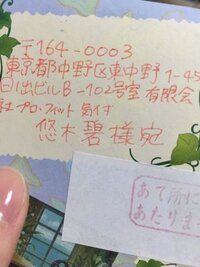 〒164-0003
東京都中野区東中野1-45
日出ビルB-102号室 有限会
社プロ・フィット 気付
悠木碧様宛
あて所に
あたりま